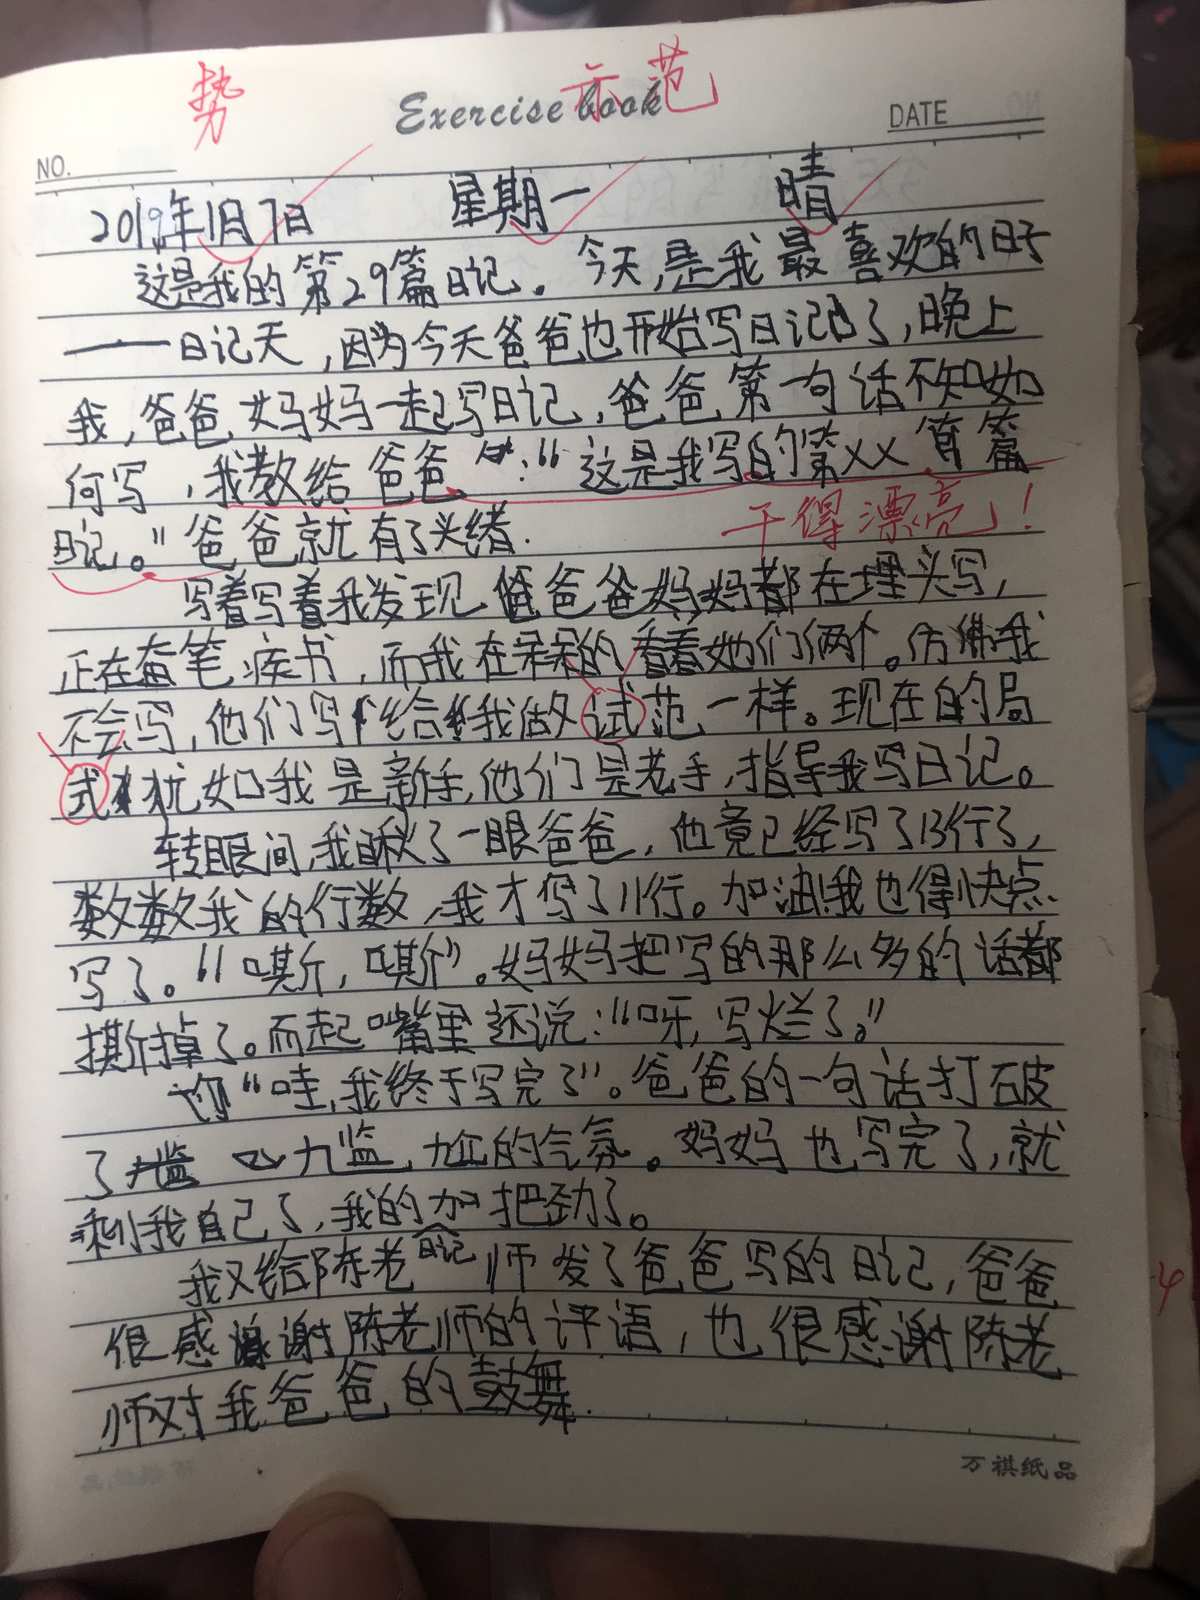 势 示范
Exercise book
NO. DATE
2019年1月7日 星期一 晴
这是我的第29篇日记。今天,是我最喜欢的日子
——日记天,因为今天爸爸也开始写日记了,晚上
我,爸爸,妈妈一起写日记,爸爸第一句话不知如
何写,我教给爸爸:“这是我写的第XX篇
干得漂亮!
日记。”爸爸就有了头绪.
写着写着我发现爸爸妈妈都在埋头写,
正在奋笔疾书,而我在呆呆的看着她们俩个。仿佛我
不会写,他们写给我做试范一样。现在的局
式犹如我是新手,他们是老手,指导我写日记。
转眼间,我瞅了一眼爸爸,他竟已经写了13行了,
数数我的行数,我才写了11行。加油!我也得快点
写了。“嘶,嘶”。妈妈把写的那么多的话都
撕掉了。而起嘴里还说:“呀,写烂了。”
“哇,我终于写完了”。爸爸的一句话打破
了尴尬的气氛。妈妈也写完了,就
剩我自己了,我的加把劲了。
我又给陈老师发了爸爸写的日记,爸爸
日记
很感谢陈老师的评语,也很感谢陈老
师对我爸爸的鼓舞.
万祺纸品